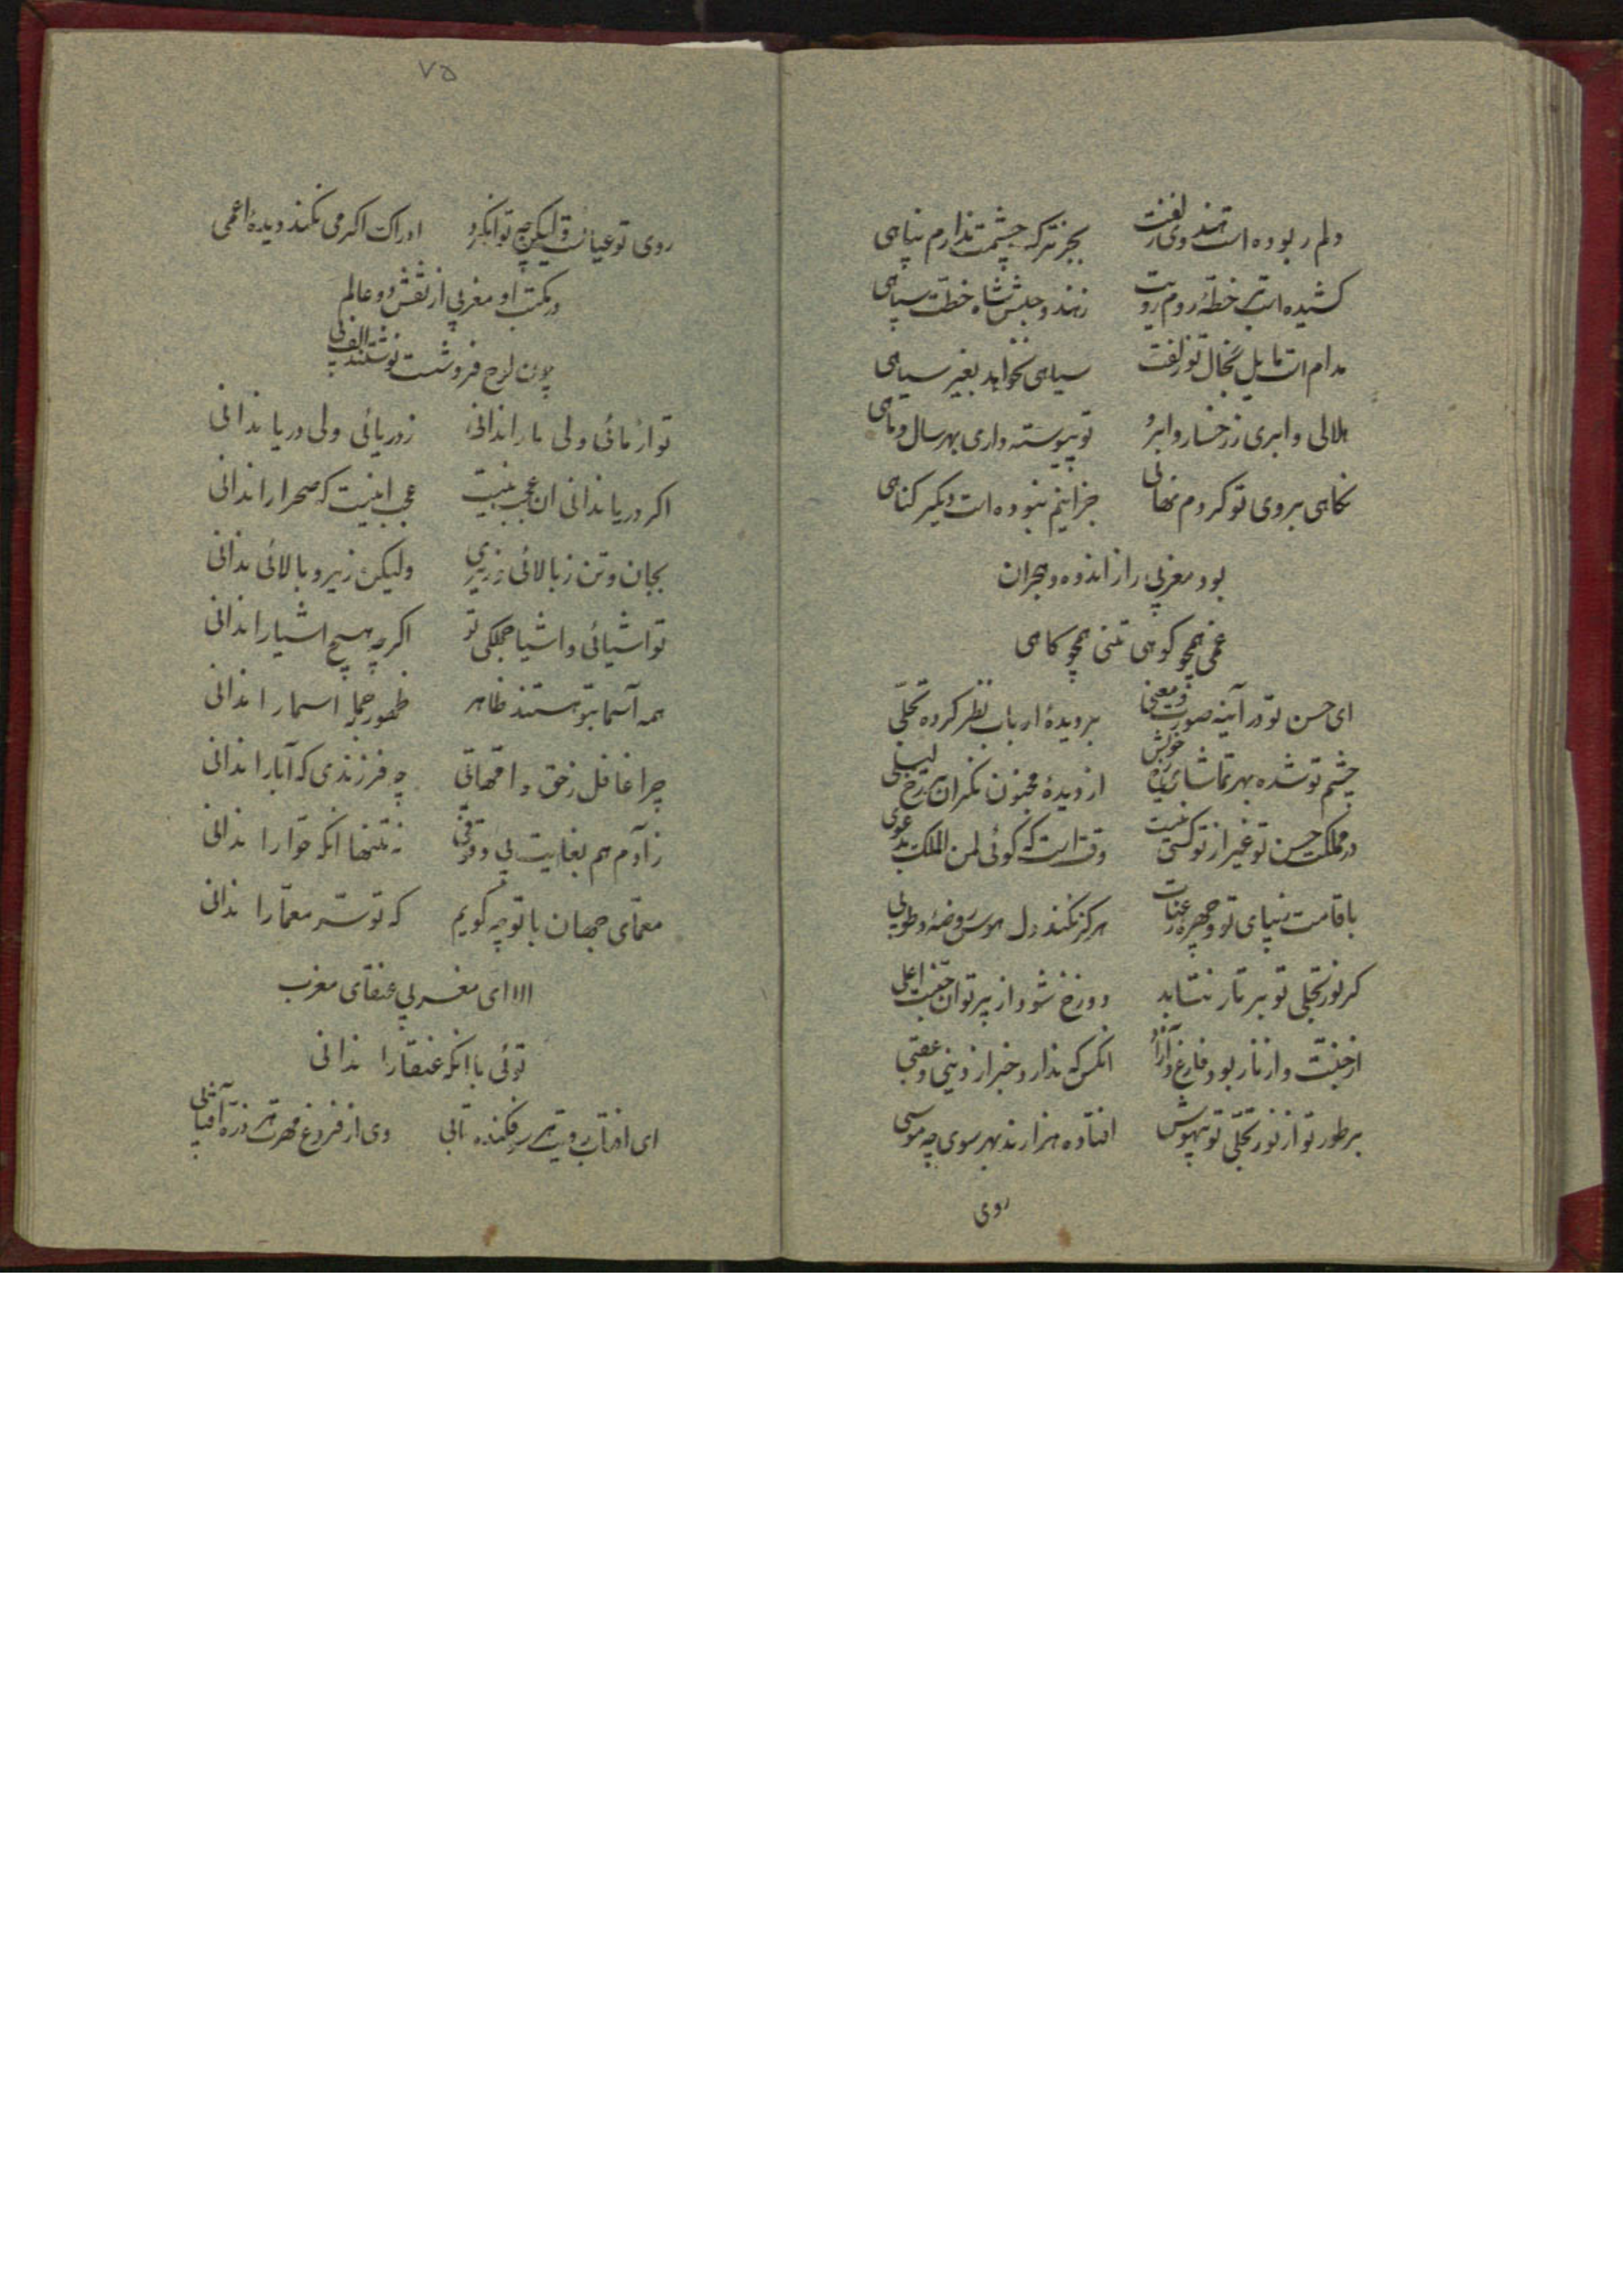 دلم ربوده است هندوی زلفت بجز ترک چشمت ندارم پناهی
کشیده است بر خطهٔ روم رویت ز هند و حبش شاه خطت سپاهی
مدام است مایل بخال تو زلفت سیاهی نخواهد بغیر سیاهی
هلالی و ابری ز رخسار و ابرو تو پیوسته داری بهر سال و ماهی
نکاهی بروی تو کردم نهانی جز اینم نبوده است دیکر کناهی
بود مغربی را ز اندوه و هجران
غمی همچو کوهی تنی همچو کاهی
ای حسن تو در آینه صورت و معنی بر دیدهٔ ارباب نظر کرده تجلّی
چشم تو شده بهر تماشای رخ خویش از دیدهٔ مجنون نکران بر رخ لیلی
در مملکت حسن تو غیر از تو کسی نیست وقت است که کوئی لمن الملک بدعوی
با قامت زیبای تو و چهره رعنات هرکز نکند دل هوس روضهٔ و طوبی
کر نور تجلی تو بر نار بتابد دوزخ شود از پرتو ان جنت اعلی
از جنّت و از نار بود فارغ و آزاد انکس که ندارد خبر از دینی و عقبی
بر طور تو از نور تجلّی تو بیهوش افتاده هزارند بهر سوی چه موسی
روی
۷۵
روی تو عیان است و لیکن چه توان کرد ادراک اکر می نکند دیدهٔ اعمی
در مکتب او مغربی از نقش دو عالم
چون لوح فروشست نوشتند الف بی
تو از مائی ولی ما را ندانی ز دریائی ولی دریا ندانی
اکر دریا ندانی ان عجب نیست عجب اینست که صحرا را ندانی
بجان و تن ز بالائی و زیری ولیکن زیر و بالائی ندانی
تو اشیائی و اشیا جملکی تو اکرچه هیچ اشیا را ندانی
همه اسما بتو هستند ظاهر ظهور جمله اسما را ندانی
چرا غافل ز حق و امهاتی چه فرزندی که آبا را ندانی
ز آدم هم بغایت بی وقوفی نه تنها انکه حوّا را ندانی
معمّای جهان با تو چه کویم که تو سرّ معمّا را ندانی
الا ای مغربی عنقای مغرب
توئی با انکه عنقا را ندانی
ای افتاب رویت بر هر فکنده تابی وی از فروغ مهرت هر ذرّه آفتابی